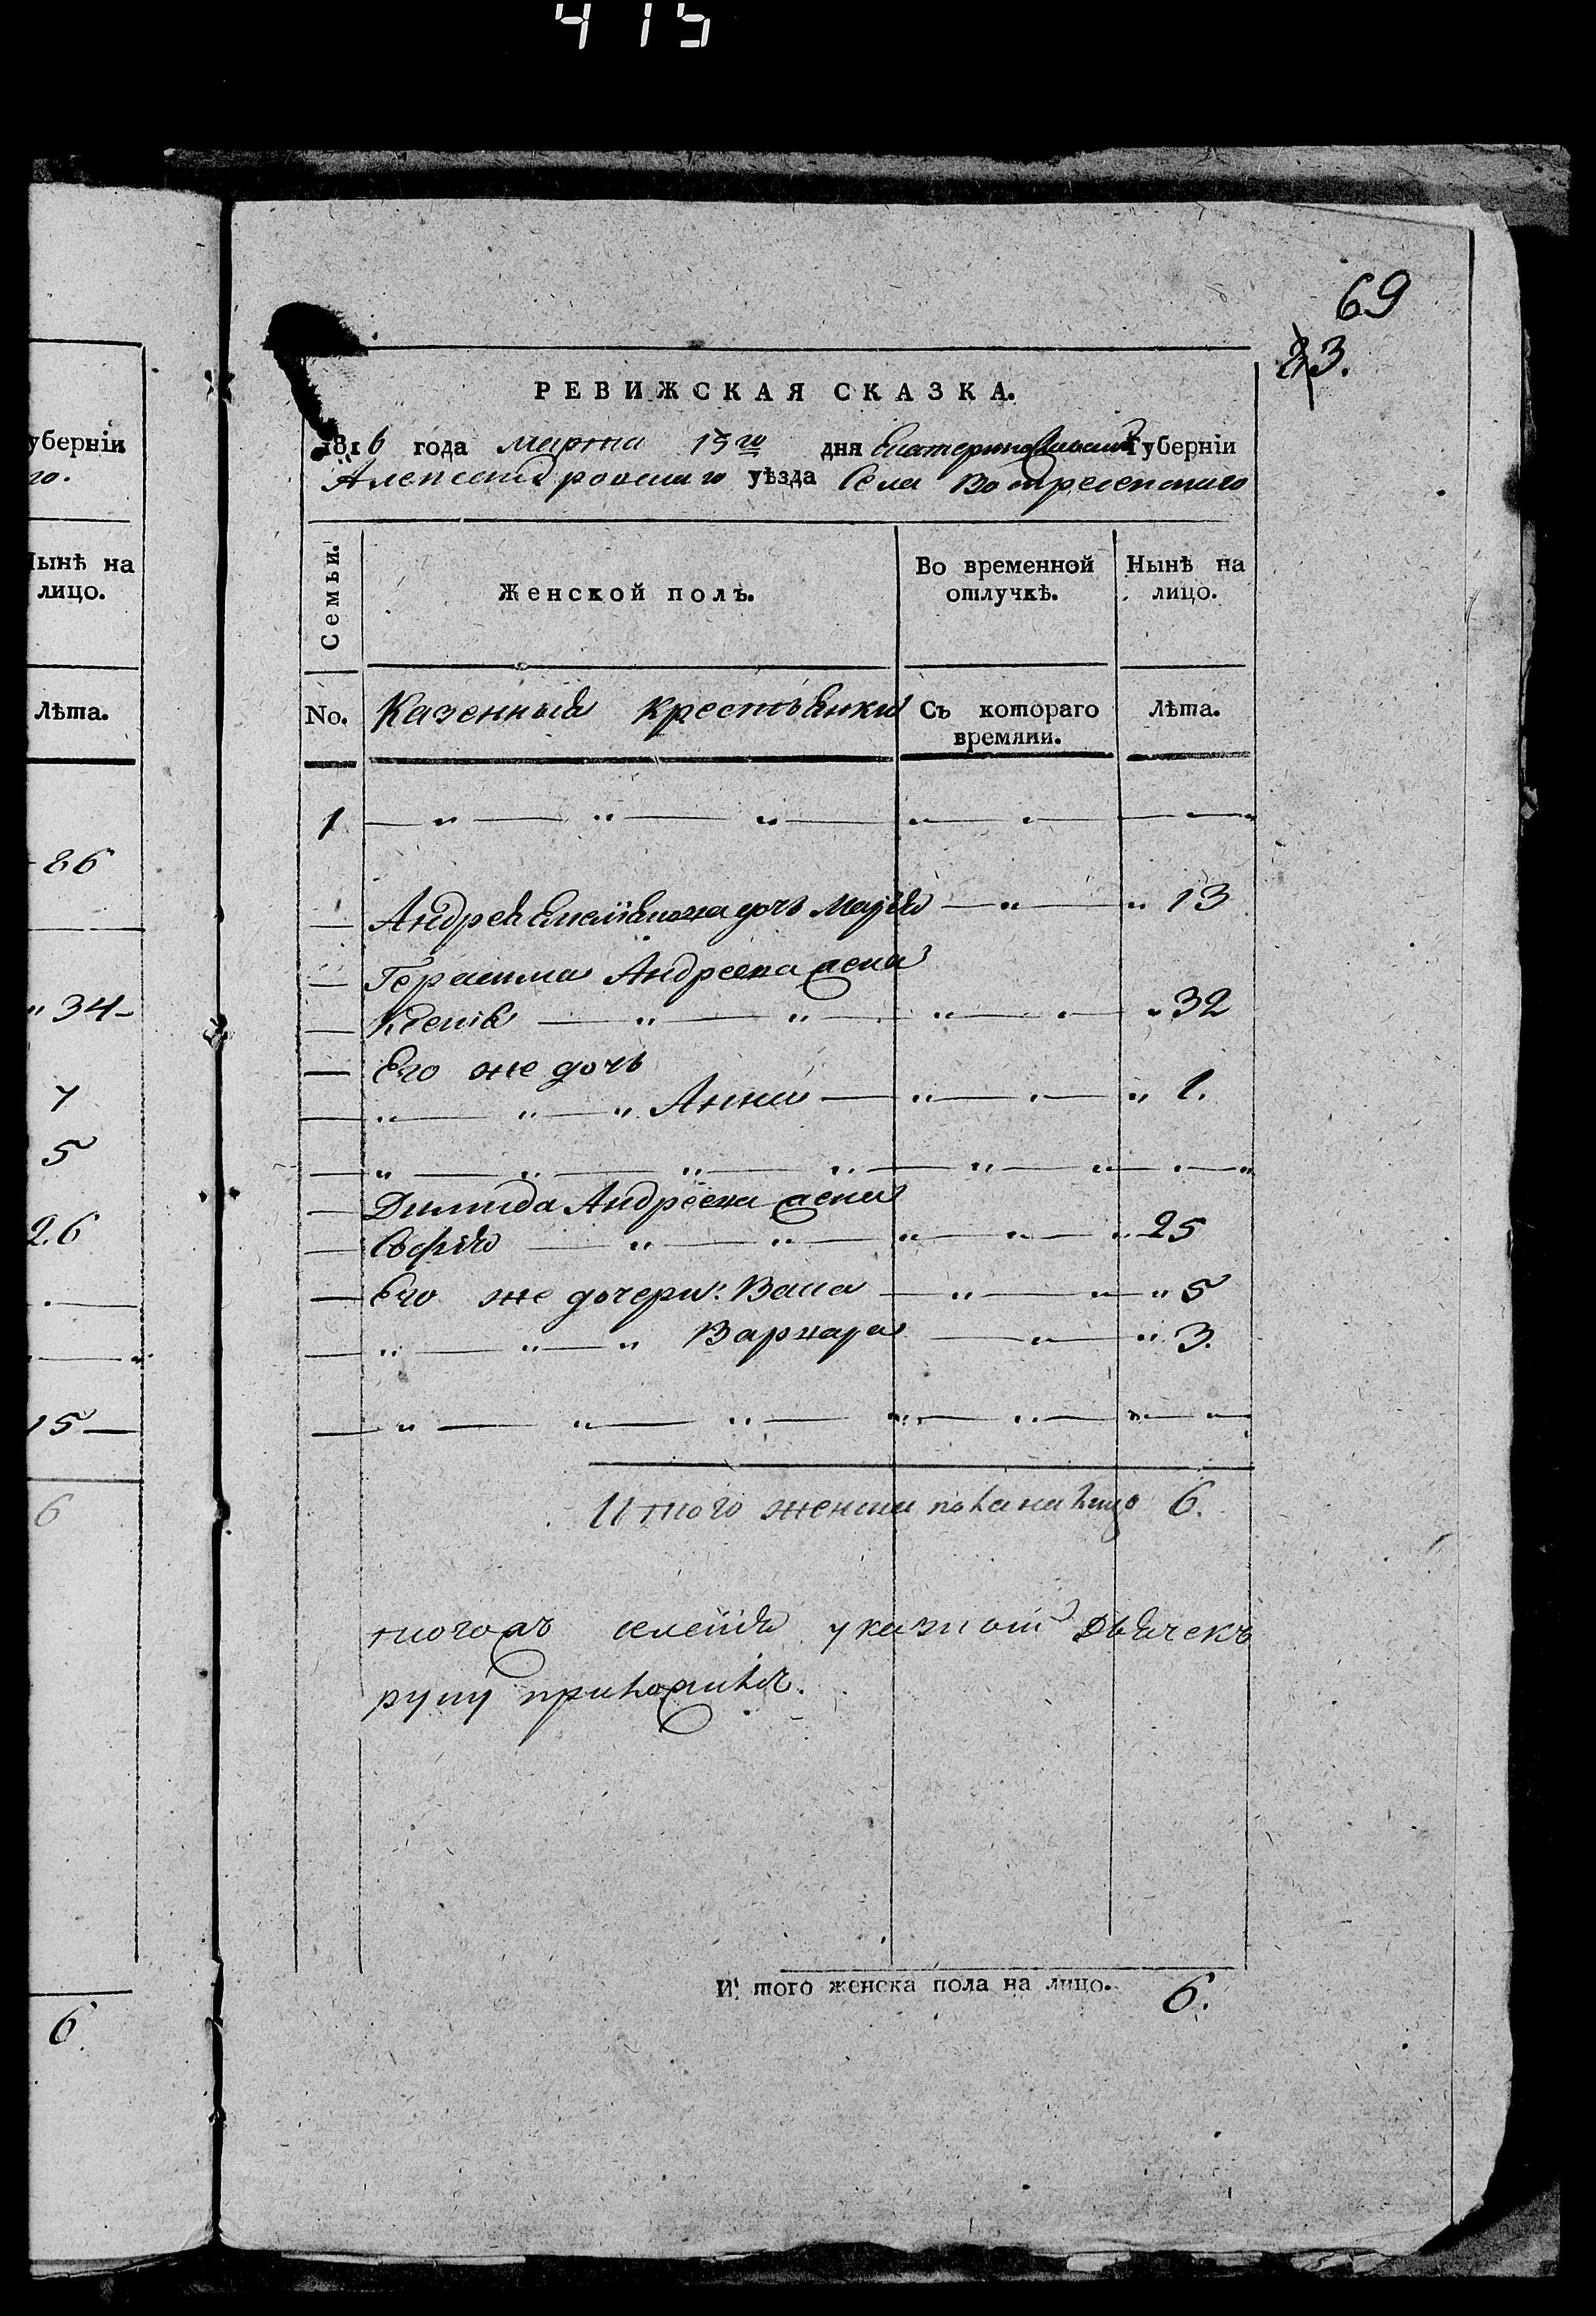 415
69
23.
РЕВИЖСКАЯ СКАЗКА.
1816 года марта 15го дня Екатеринославской Губерніи
Александровскаго уѣзда Села Вознесенскаго
Семьи.
Женской полъ.
Во временной отлучкѣ.
Нынѣ на лицо.
No.
Казенныя крестьянки
Съ котораго времяни.
Лѣта.
1
Андрея дочь Марія 13
Герасима Андреева жена
Ксенія 32
Его же дочь
Анна 1.
Андреева жена
Софія 25
Его же дочери: Васса 5
Варвара 3.
Итого женска пола на лицо 6.
тогожъ селенія указной Дьячекъ
руку приложилъ.
И того женска пола на лицо. 6.
уберніи
го.
Нынѣ на
лицо.
Лѣта.
86
34
7
5
26
15
6
6.